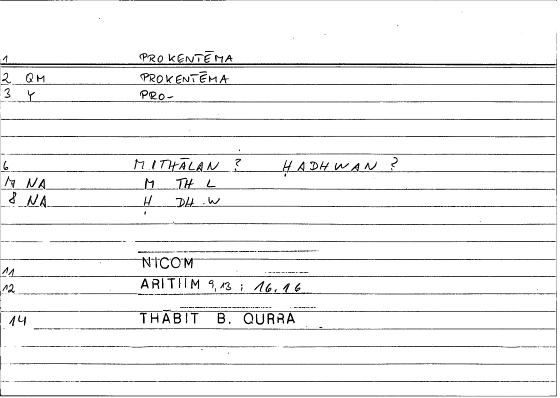 1 PROKENTĒMA
2 QM PROKENTĒMA
3 Y PRO-
6 MITHĀLAN ? ḤADHWAN ?
7 NA M TH L
8 NA Ḥ DH W
11 NICOM
12 ARITIIM 9,13 ; 16.16
14 THĀBIT B. QURRA